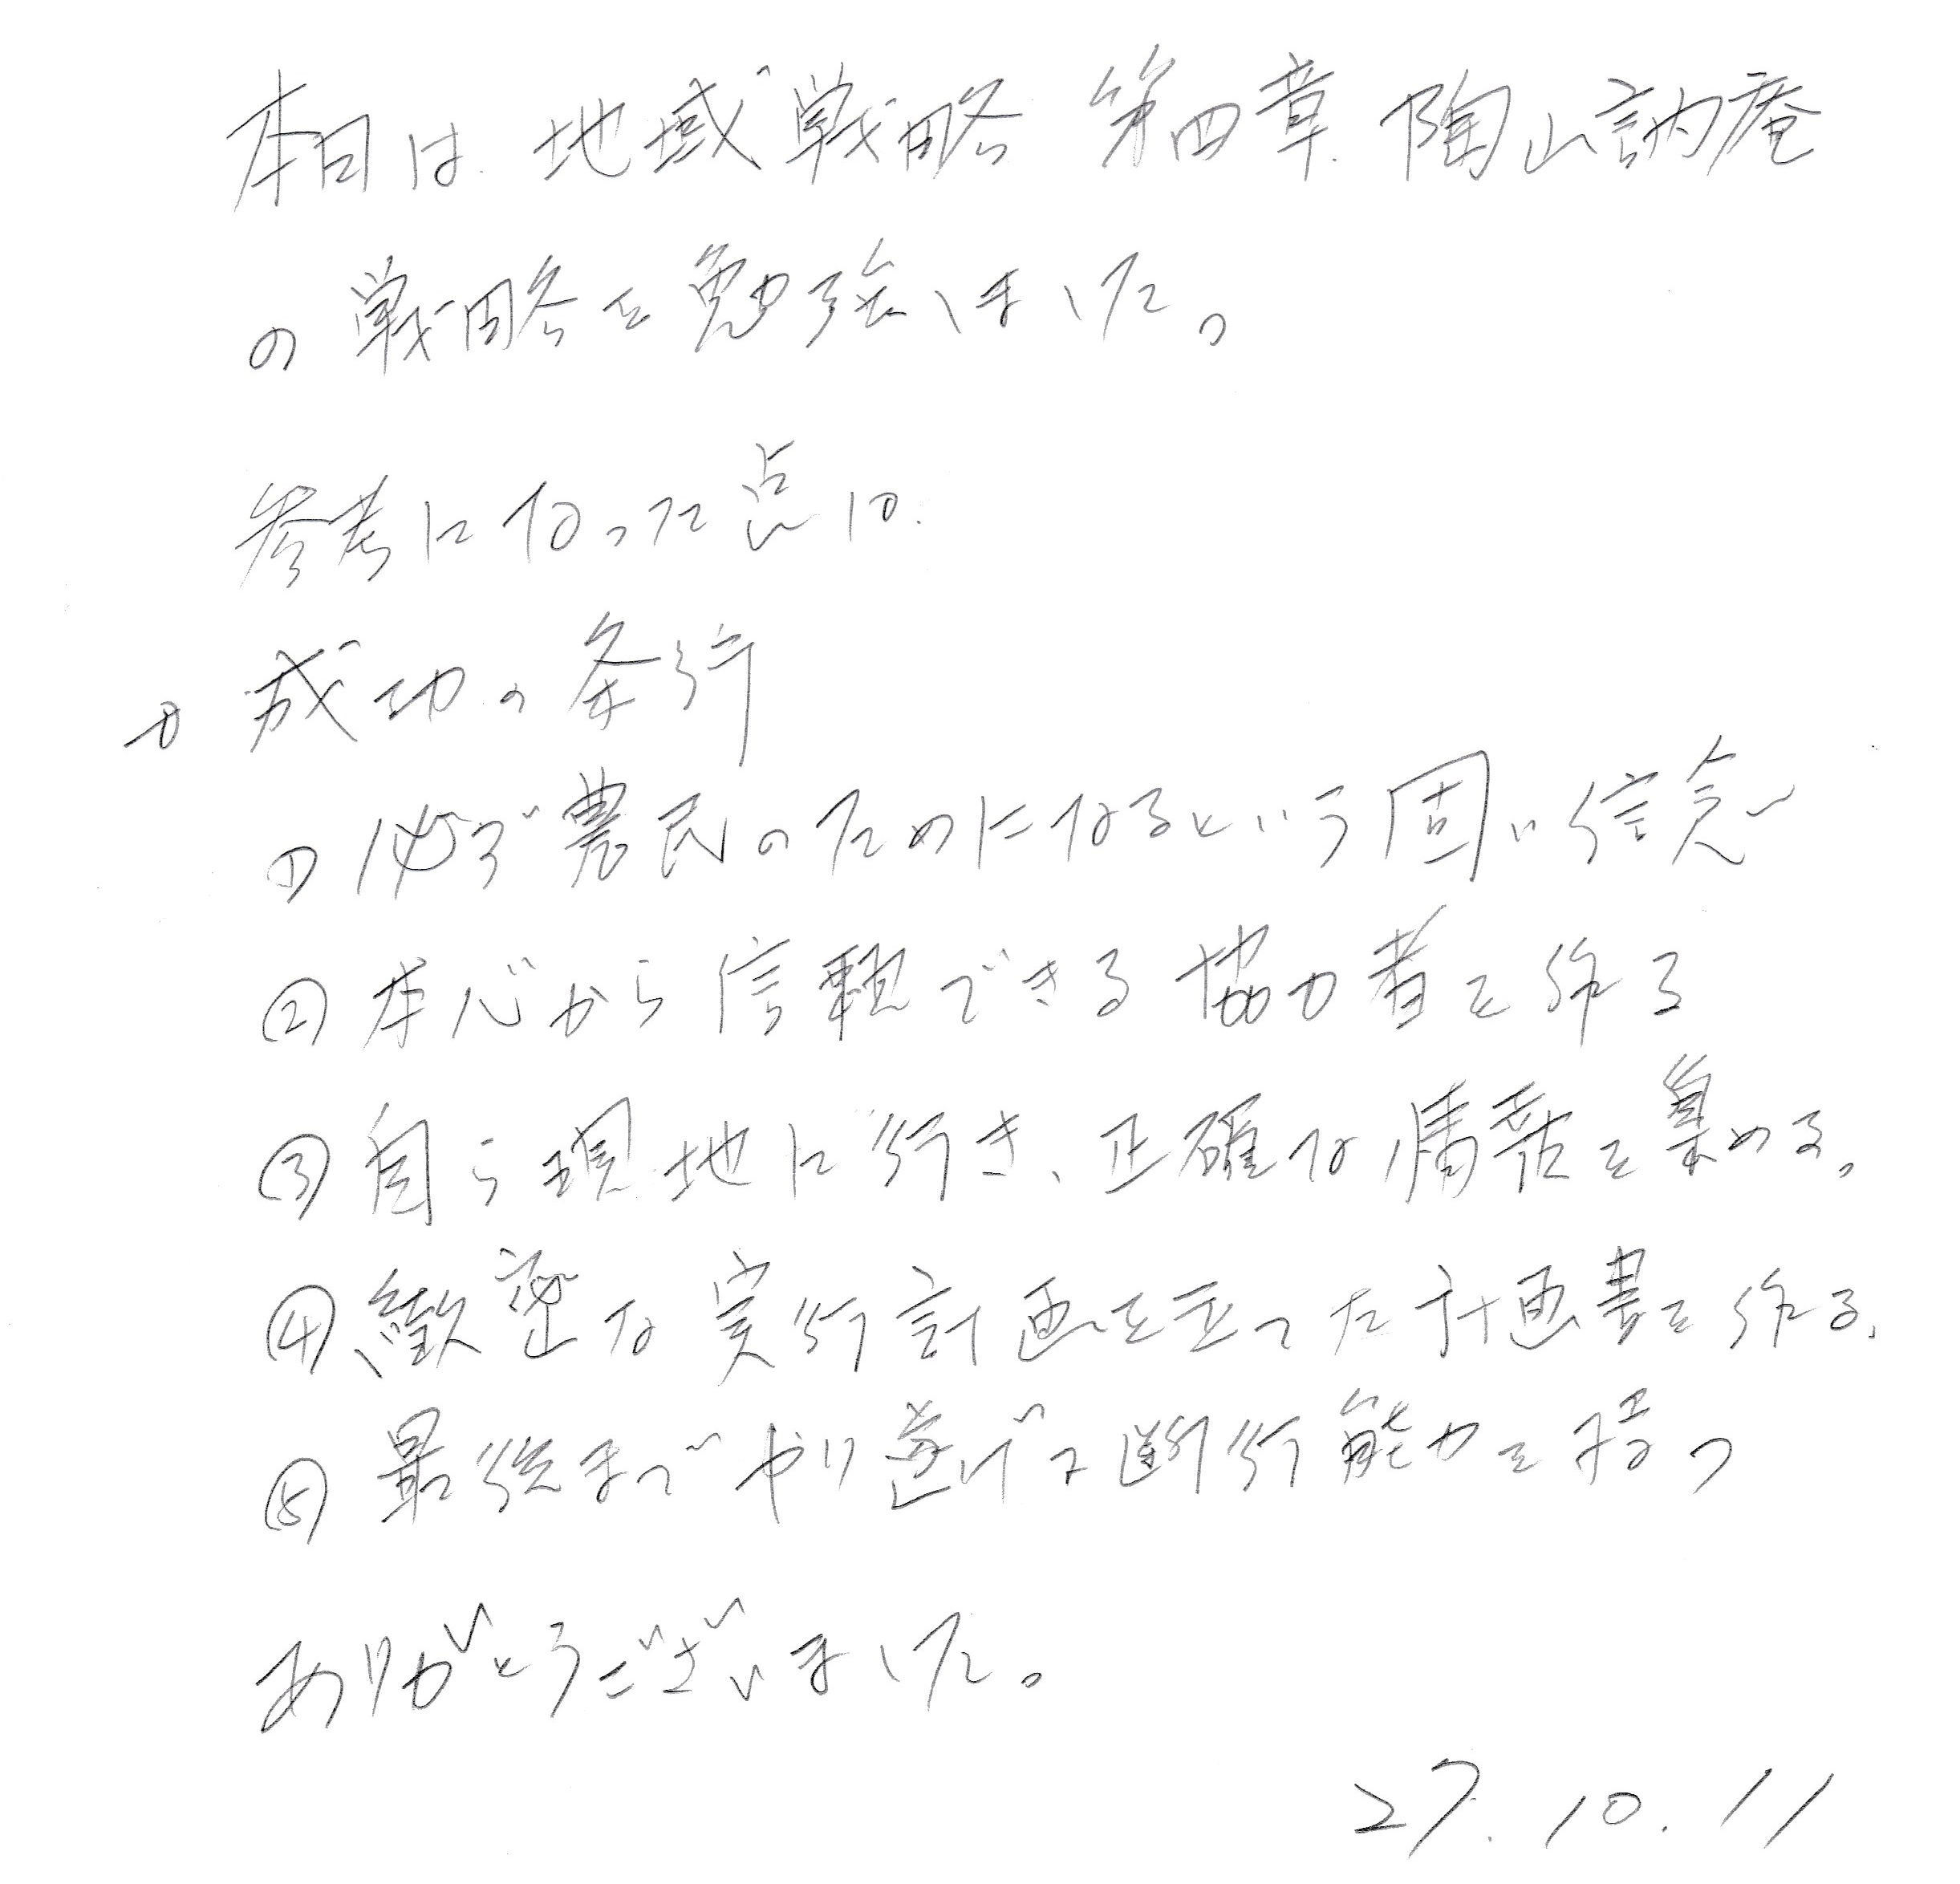 本日は 地域戦略 第四章 陶山訥庵
の戦略を勉強しました。
参考になった点は
成功の条件
① 必ず農民のためになるという固い信念
② 本心から信頼できる協力者を作る
③ 自ら現地に行き、正確な情報を集める。
④ 緻密な実行計画を立てた計画書を作る。
⑤ 最後までやり遂げる断行能力を持つ
ありがとうございました。
27.10.11